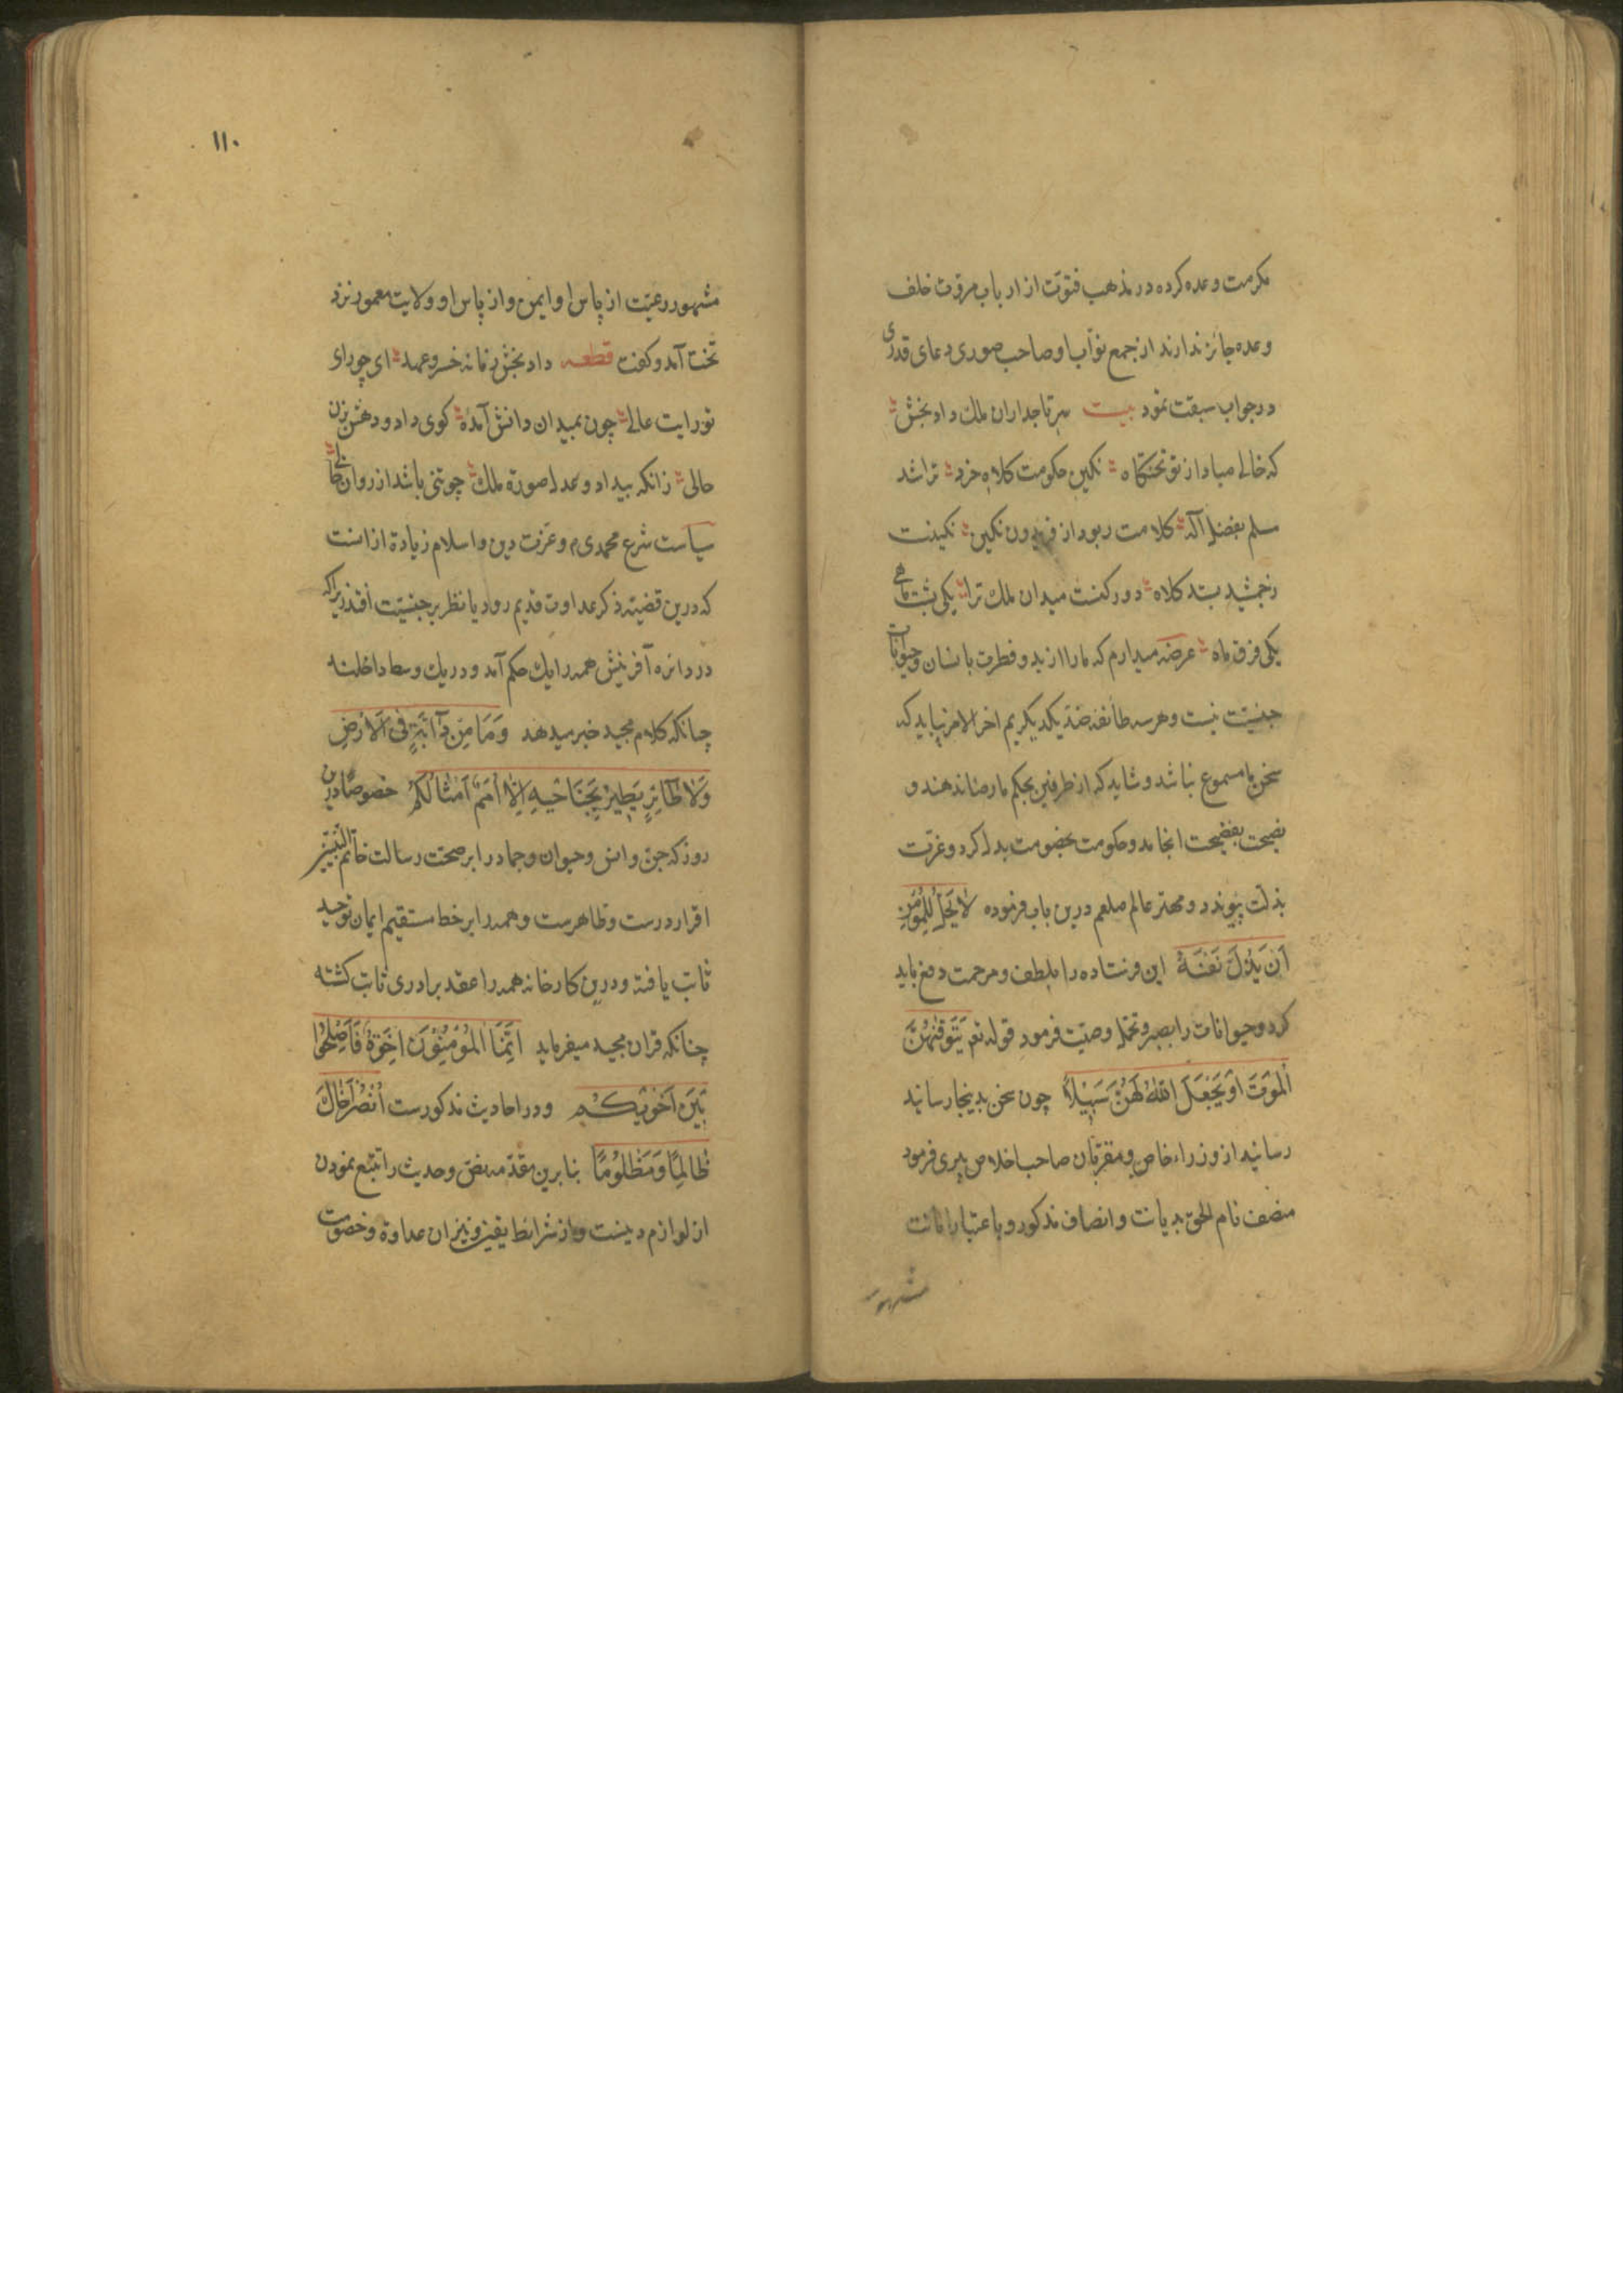 مكرمت وعده كرده در مذهب فتوّت از ارباب مروّت خلف
وعده جائز ندارند از جمع نوّاب او صاحب صورى دعاى قدرى
در جواب سبقت نمود بيت سر تاجداران ملك داد بخش
كه خالى مباد از تو تختگاه نگين حكومت كلاه خرد ترا شد
مسلم بفضل آله كلامت ربود از فريدون نگين نگينت
زجمشيد بستد كلاه دو ركنست ميدان ملك ترا يكى پشت ماهى
يكى فرق ماه عرضه ميدارم كه ما را از يد و فطرت بانسان و حيوانات
جنسيّت نيست و هر سه طائفه ضدّ يكديكريم اخر الامر نبايد كه
سخن ما مسموع نباشد و شايد كه از طرفين بحكم ما رضا ندهند و
نصيحت بفضيحت انجامد و حكومت بخصومت بدل كردد و عزّت
بذلّت پيوندد و مهتر عالم صلعم درين باب فرموده لَا يَحِلُّ لِلْمُؤْمِنِ
اَنْ يُذِلَّ نَفْسَهُ اين فرستاده را بلطف و مرحمت دفع بايد
كرد و حيوانات را بصبر و تحمّل وصيّت فرمود قوله تعم يَتَوَفّٰهُنَّ
الْمَوْتُ اَوْ يَجْعَلَ اللّٰهُ لَهُنَّ سَبِيلًا چون سخن بدينجا رسانيد
رسانيد از وزراء خاص و مقرّبان صاحب اخلاص پيرى فرمود
منصف نام الحق بديانت و انصاف مذكور و باعتبار امانت
مشهور
١١٠
مشهور رعيّت از پاس او ايمن و از پاس او ولايت معمور نزد
تخت آمد و كفت قطعه داد بخش زمانه خسرو عهد اى چو راى
تو رايت عالى چون بميدان دانش آمدۀ كوى داد و دهش بزن
حالى زانكه بيداد و عدل صورة ملك چو تنى باشد از روان خالى
سياست شرع محمدى م و عزّت دين و اسلام زيادة از انست
كه درين قضيّه ذكر عداوت قديم رود يا نظر بر جنسيّت افتد زيراكه
در دائره آفرينش همه را يك حكم آمد و در يك وسط داخلند
چنانكه كلام مجيد خبر ميدهد وَمَا مِنْ دَآبَّةٍ فِى الْاَرْضِ
وَلَا طَآئِرٍ يَطِيرُ بِجَنَاحَيْهِ اِلَّا اُمَمٌ اَمْثَالُكُمْ خصوصًا درين
روز كه جنّ و انس و حيوان و جماد را بر صحّت رسالت خاتم النّبيّين
اقرار درست و ظاهرست و همه را بر خط مستقيم ايمان توحيد
ثابت يافته و درين كارخانه همه را عقد برادرى ثابت كشته
چنانكه قران مجيد ميفرمايد اِنَّمَا الْمُؤْمِنُونَ اِخْوَةٌ فَاَصْلِحُوا
بَيْنَ اَخَوَيْكُمْ و در احاديث مذكورست اُنْصُرْ اَخَاكَ
ظَالِمًا وَمَظْلُومًا بنا برين مقدّمه نصّ و حديث را تتبّع نمودن
از لوازم دينست و از شرائط يقين و نيز ان عداوة و خصومت